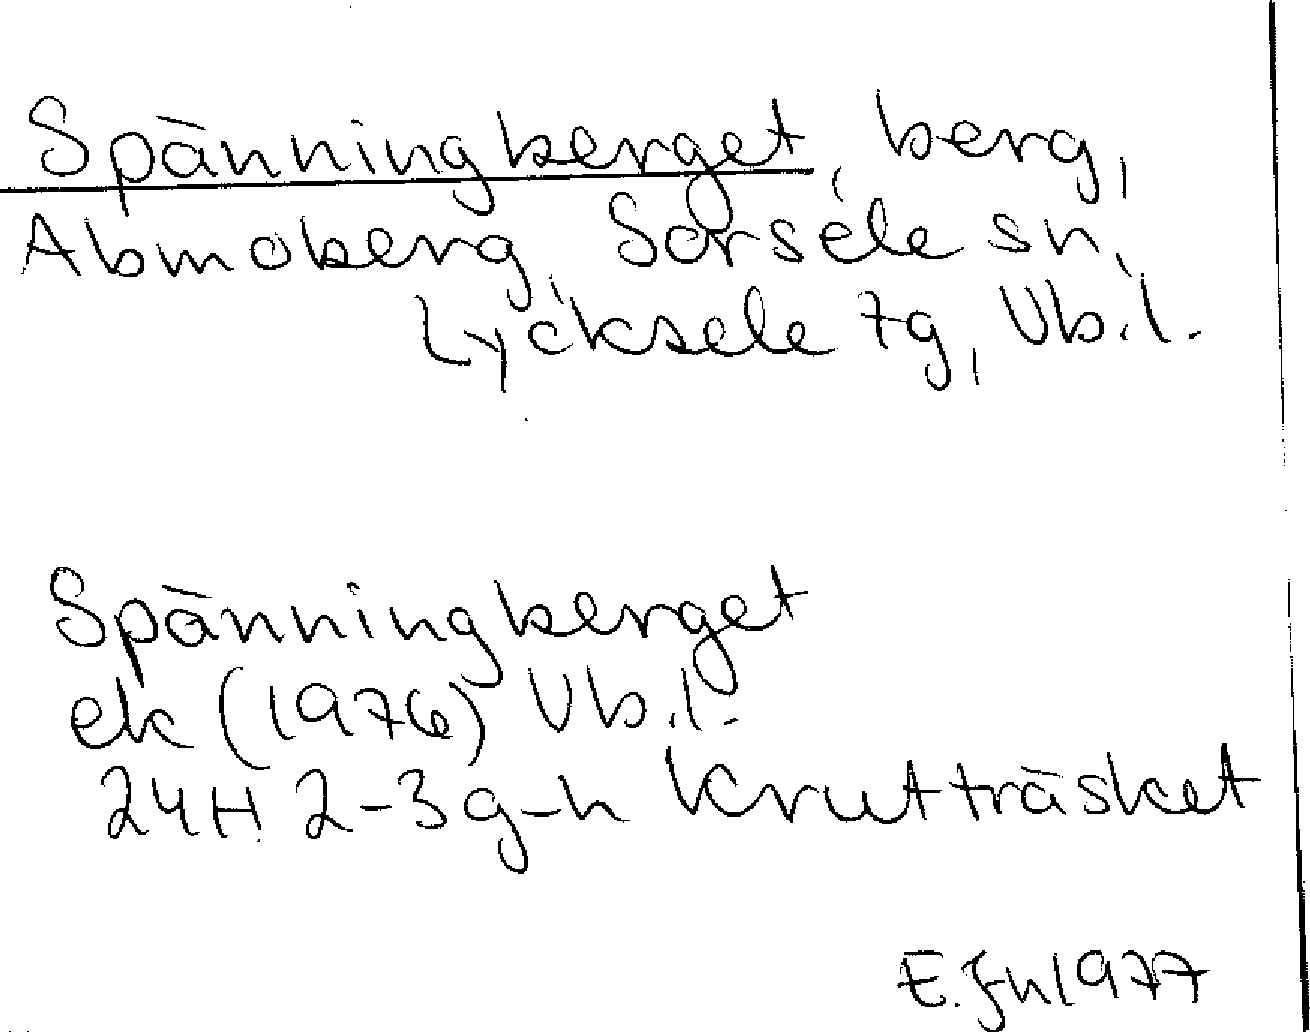 Spänningberget, berg,
Abmoberg, Sorsele sn,
Lycksele tg, Vb.l.
Spänningberget
ek (1976) Vb.l.
24H 2-3g-h Krutträsket
E. Jn 1977